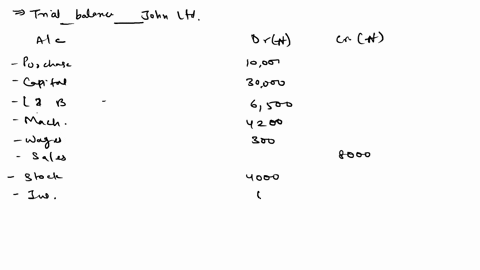 ⇒ Trial balance John Ltd.
A/c Dr (₦) Cr (₦)
- Purchase 10,000
- Capital 30,000
- L & B - 6,500
- Mach. 4200
- Wages 300
- Sales 8000
- Stock 4000
- Inv. (